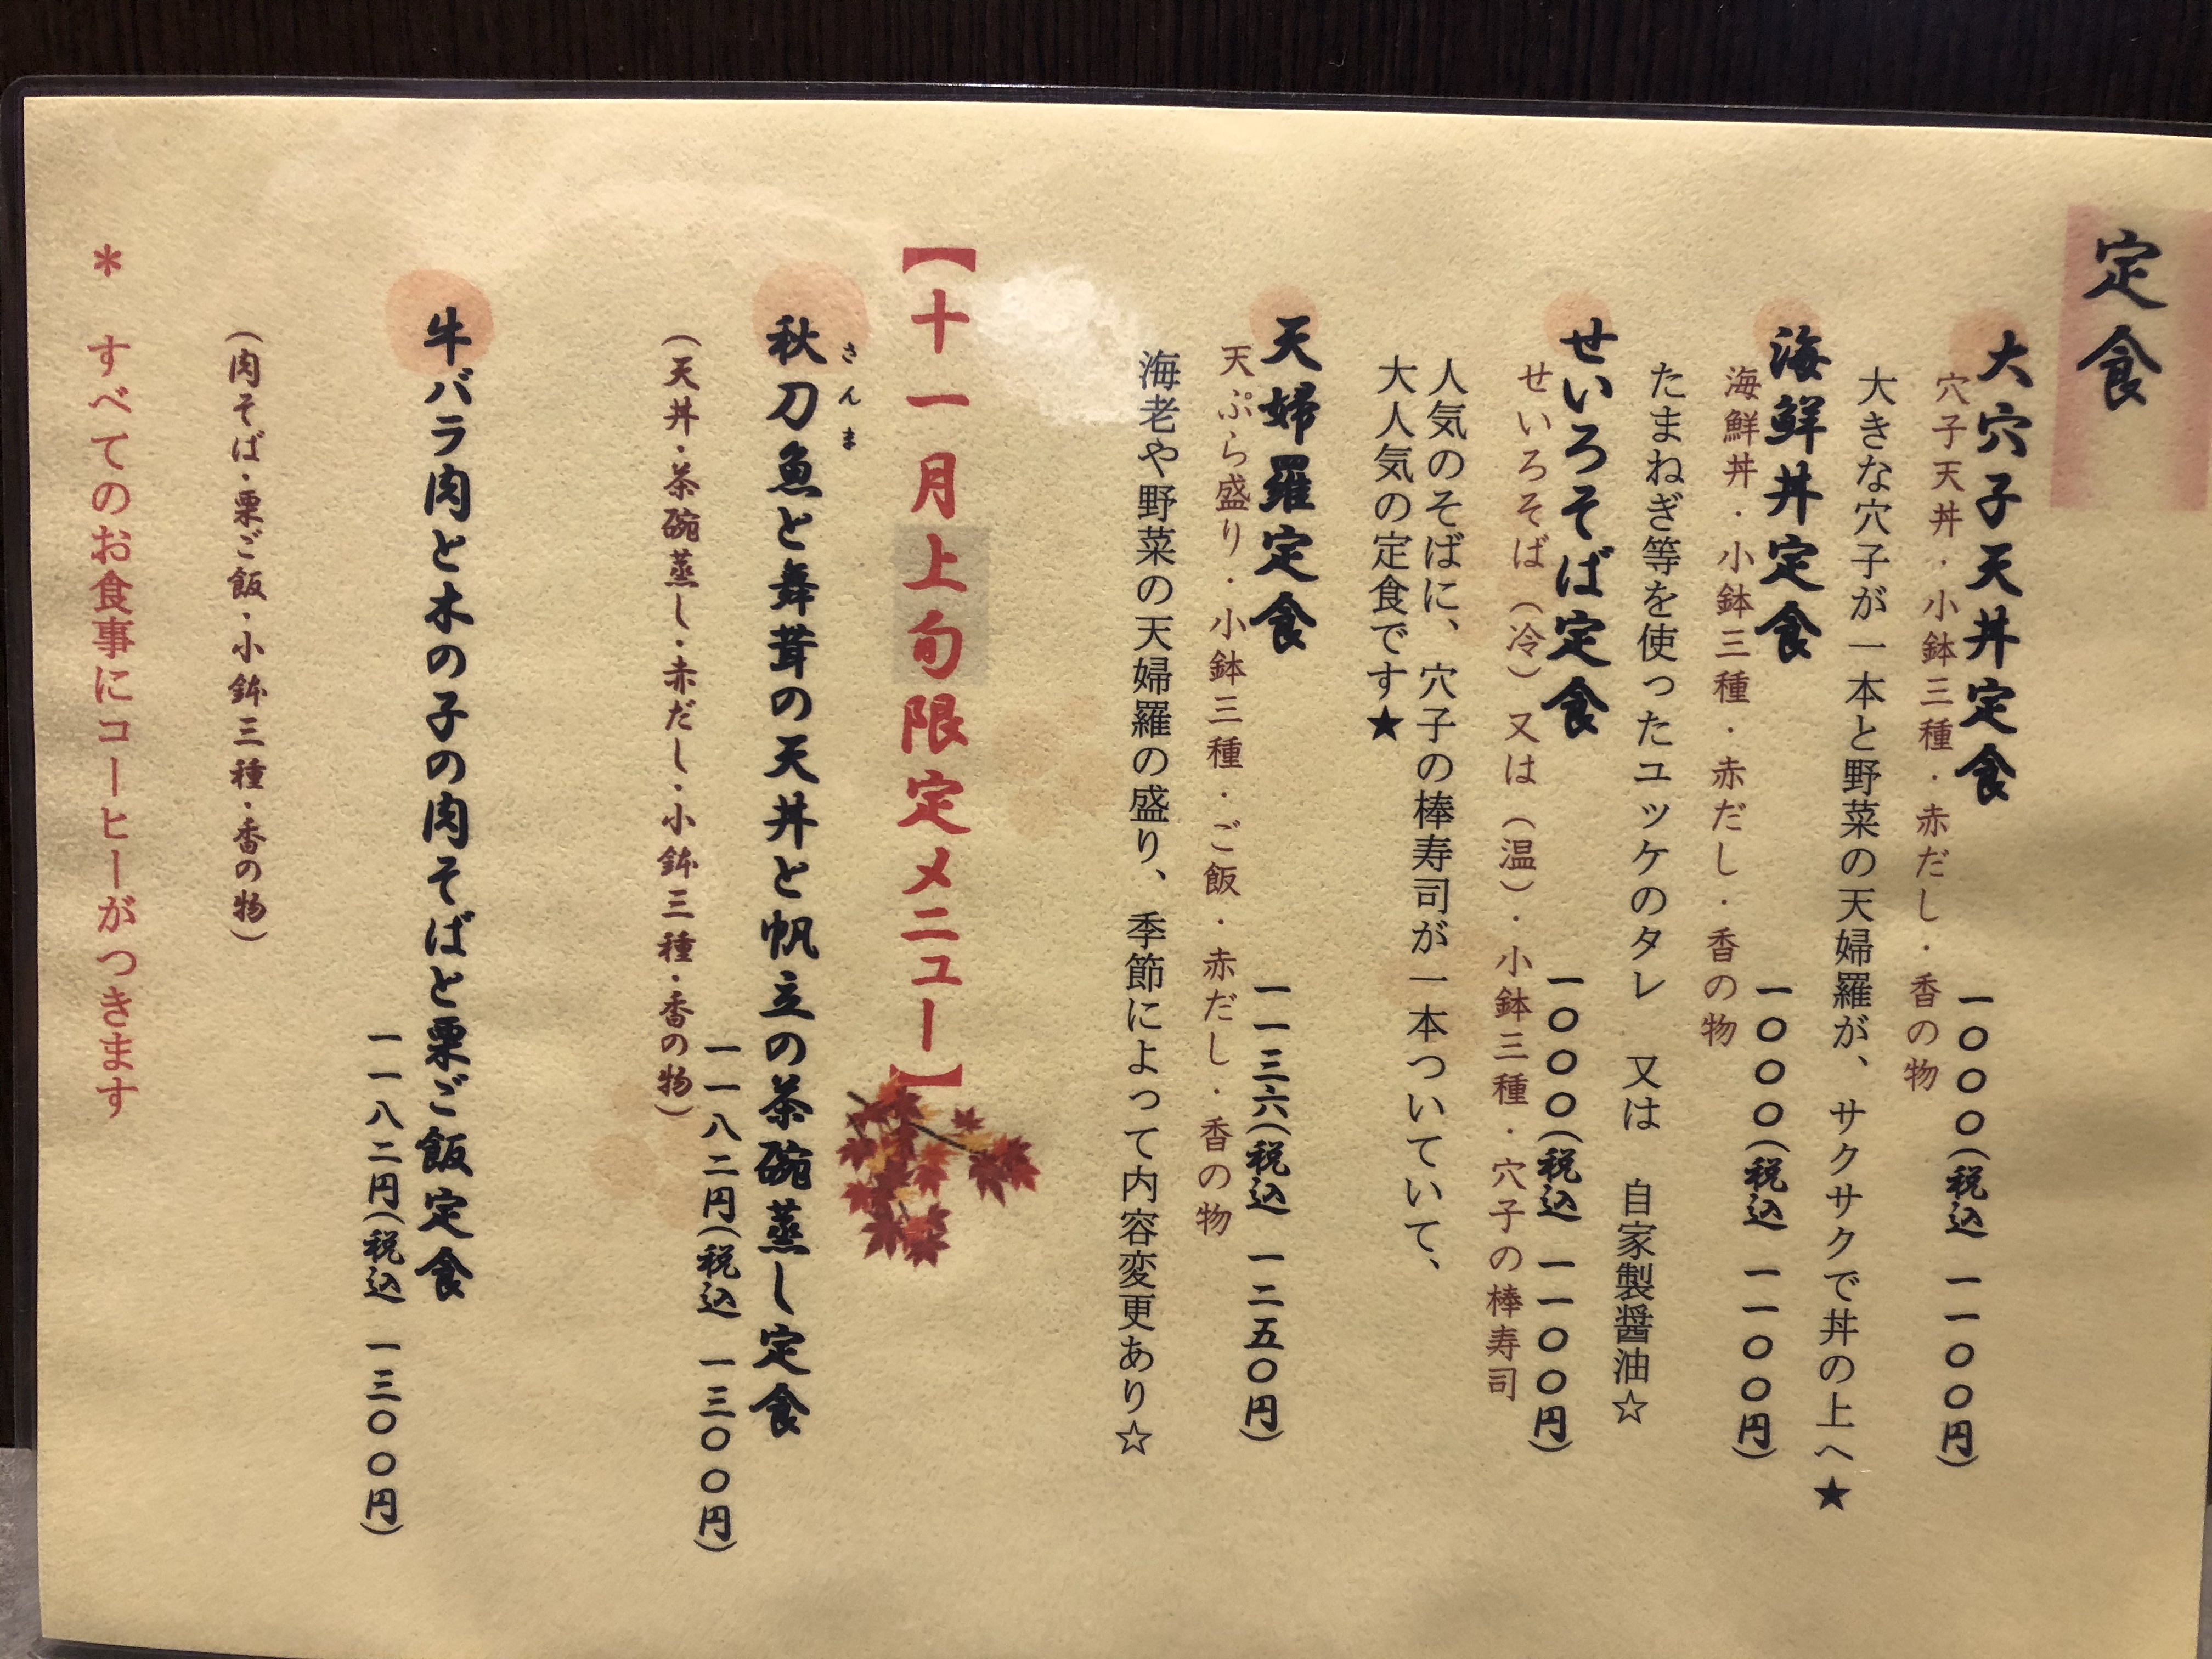 定食
大穴子天丼定食
一〇〇〇(税込 一一〇〇円)
穴子天丼・小鉢三種・赤だし・香の物
大きな穴子が一本と野菜の天婦羅が、サクサクで丼の上へ★
海鮮丼定食
一〇〇〇(税込 一一〇〇円)
海鮮丼・小鉢三種・赤だし・香の物
たまねぎ等を使ったユッケのタレ 又は 自家製醤油☆
せいろそば定食
一〇〇〇(税込 一一〇〇円)
せいろそば(冷)又は(温)・小鉢三種・穴子の棒寿司
人気のそばに、穴子の棒寿司が一本ついていて、
大人気の定食です★
天婦羅定食
一一三六(税込 一二五〇円)
天ぷら盛り・小鉢三種・ご飯・赤だし・香の物
海老や野菜の天婦羅の盛り、季節によって内容変更あり☆
【十一月上旬限定メニュー】
さんま
秋刀魚と舞茸の天丼と帆立の茶碗蒸し定食
一一八二円(税込 一三〇〇円)
(天丼・茶碗蒸し・赤だし・小鉢三種・香の物)
牛バラ肉と木の子の肉そばと栗ご飯定食
一一八二円(税込 一三〇〇円)
(肉そば・栗ご飯・小鉢三種・香の物)
＊ すべてのお食事にコーヒーがつきます